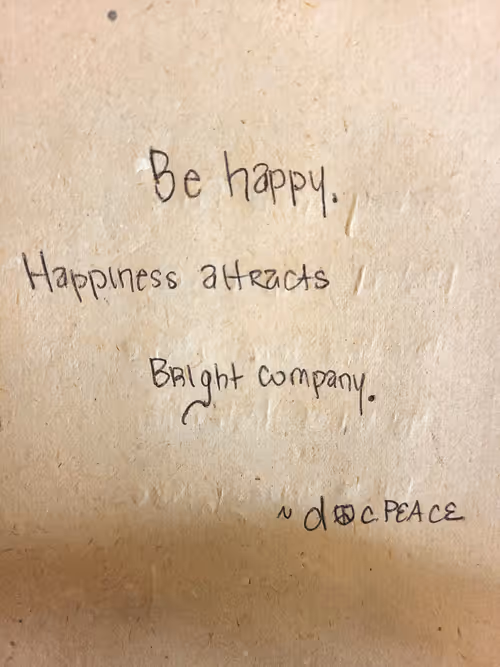 Be happy.
Happiness attracts
Bright company.
~ d☮c.PEACE